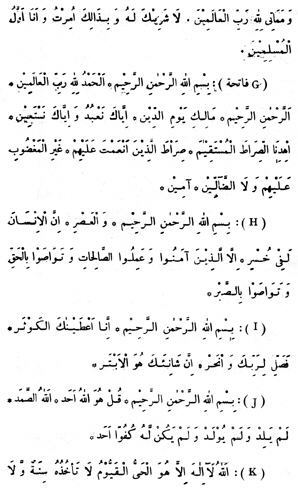 وَ مَمَاتِى لِلهِ رَبِّ الْعَالَمِيْنَ ۰ لَا شَرِيْكَ لَهُ وَ بِذَالِكَ اُمِرْتُ وَ اَنَا اَوَّلُ
الْمُسْلِمِيْنَ ۰
(G فاتحة ): بِسْمِ اللهِ الرَّحْمٰنِ الرَّحِيْمِ ۰ اَلْحَمْدُ لِلهِ رَبِّ الْعَالَمِيْنَ ۰
اَلرَّحْمٰنِ الرَّحِيْمِ ۰ مَالِكِ يَوْمِ الدِّيْنِ ۰ اِيَّاكَ نَعْبُدُ وَ اِيَّاكَ نَسْتَعِيْنَ ۰
اِهْدِنَا الصِّرَاطَ الْمُسْتَقِيْمَ ۰ صِرَاطَ الَّذِيْنَ اَنْعَمْتَ عَلَيْهِمْ ۰ غَيْرِ الْمَغْضُوْبِ
عَلَيْهِمْ وَ لَا الضَّآلِّيْنَ ۰ آمِيْنَ ۰
(H): بِسْمِ اللهِ الرَّحْمٰنِ الرَّحِيْمِ ۰ وَ الْعَصْرِ ۰ اِنَّ الْاِنْسَانَ
لَفِىْ خُسْرٍ ۰ اِلَّا الَّذِيْنَ آمَنُوْا وَ عَمِلُوا الصَّالِحَاتِ وَ تَوَاصَوْا بِالْحَقِّ
وَ تَوَاصَوْا بِالصَّبْرِ ۰
(I): بِسْمِ اللهِ الرَّحْمٰنِ الرَّحِيْمِ ۰ اِنَّا اَعْطَيْنٰكَ الْكَوْثَرَ ۰
فَصَلِّ لِرَبِّكَ وَ انْحَرْ ۰ اِنَّ شَانِئَكَ هُوَ الْاَبْتَرُ ۰
(J): بِسْمِ اللهِ الرَّحْمٰنِ الرَّحِيْمِ ۰ قُلْ هُوَ اللهُ اَحَد ۰ اَللهُ الصَّمَد ۰
لَمْ يَلِدْ وَ لَمْ يُوْلَدْ وَ لَمْ يَكُنْ لَّهُ كُفُوًا اَحَد ۰
(K): اَللهُ لَآ اِلٰهَ اِلَّا هُوَ الْحَىُّ الْقَيُّوْمُ لَا تَاْخُذُهُ سِنَةٌ وَّ لَا